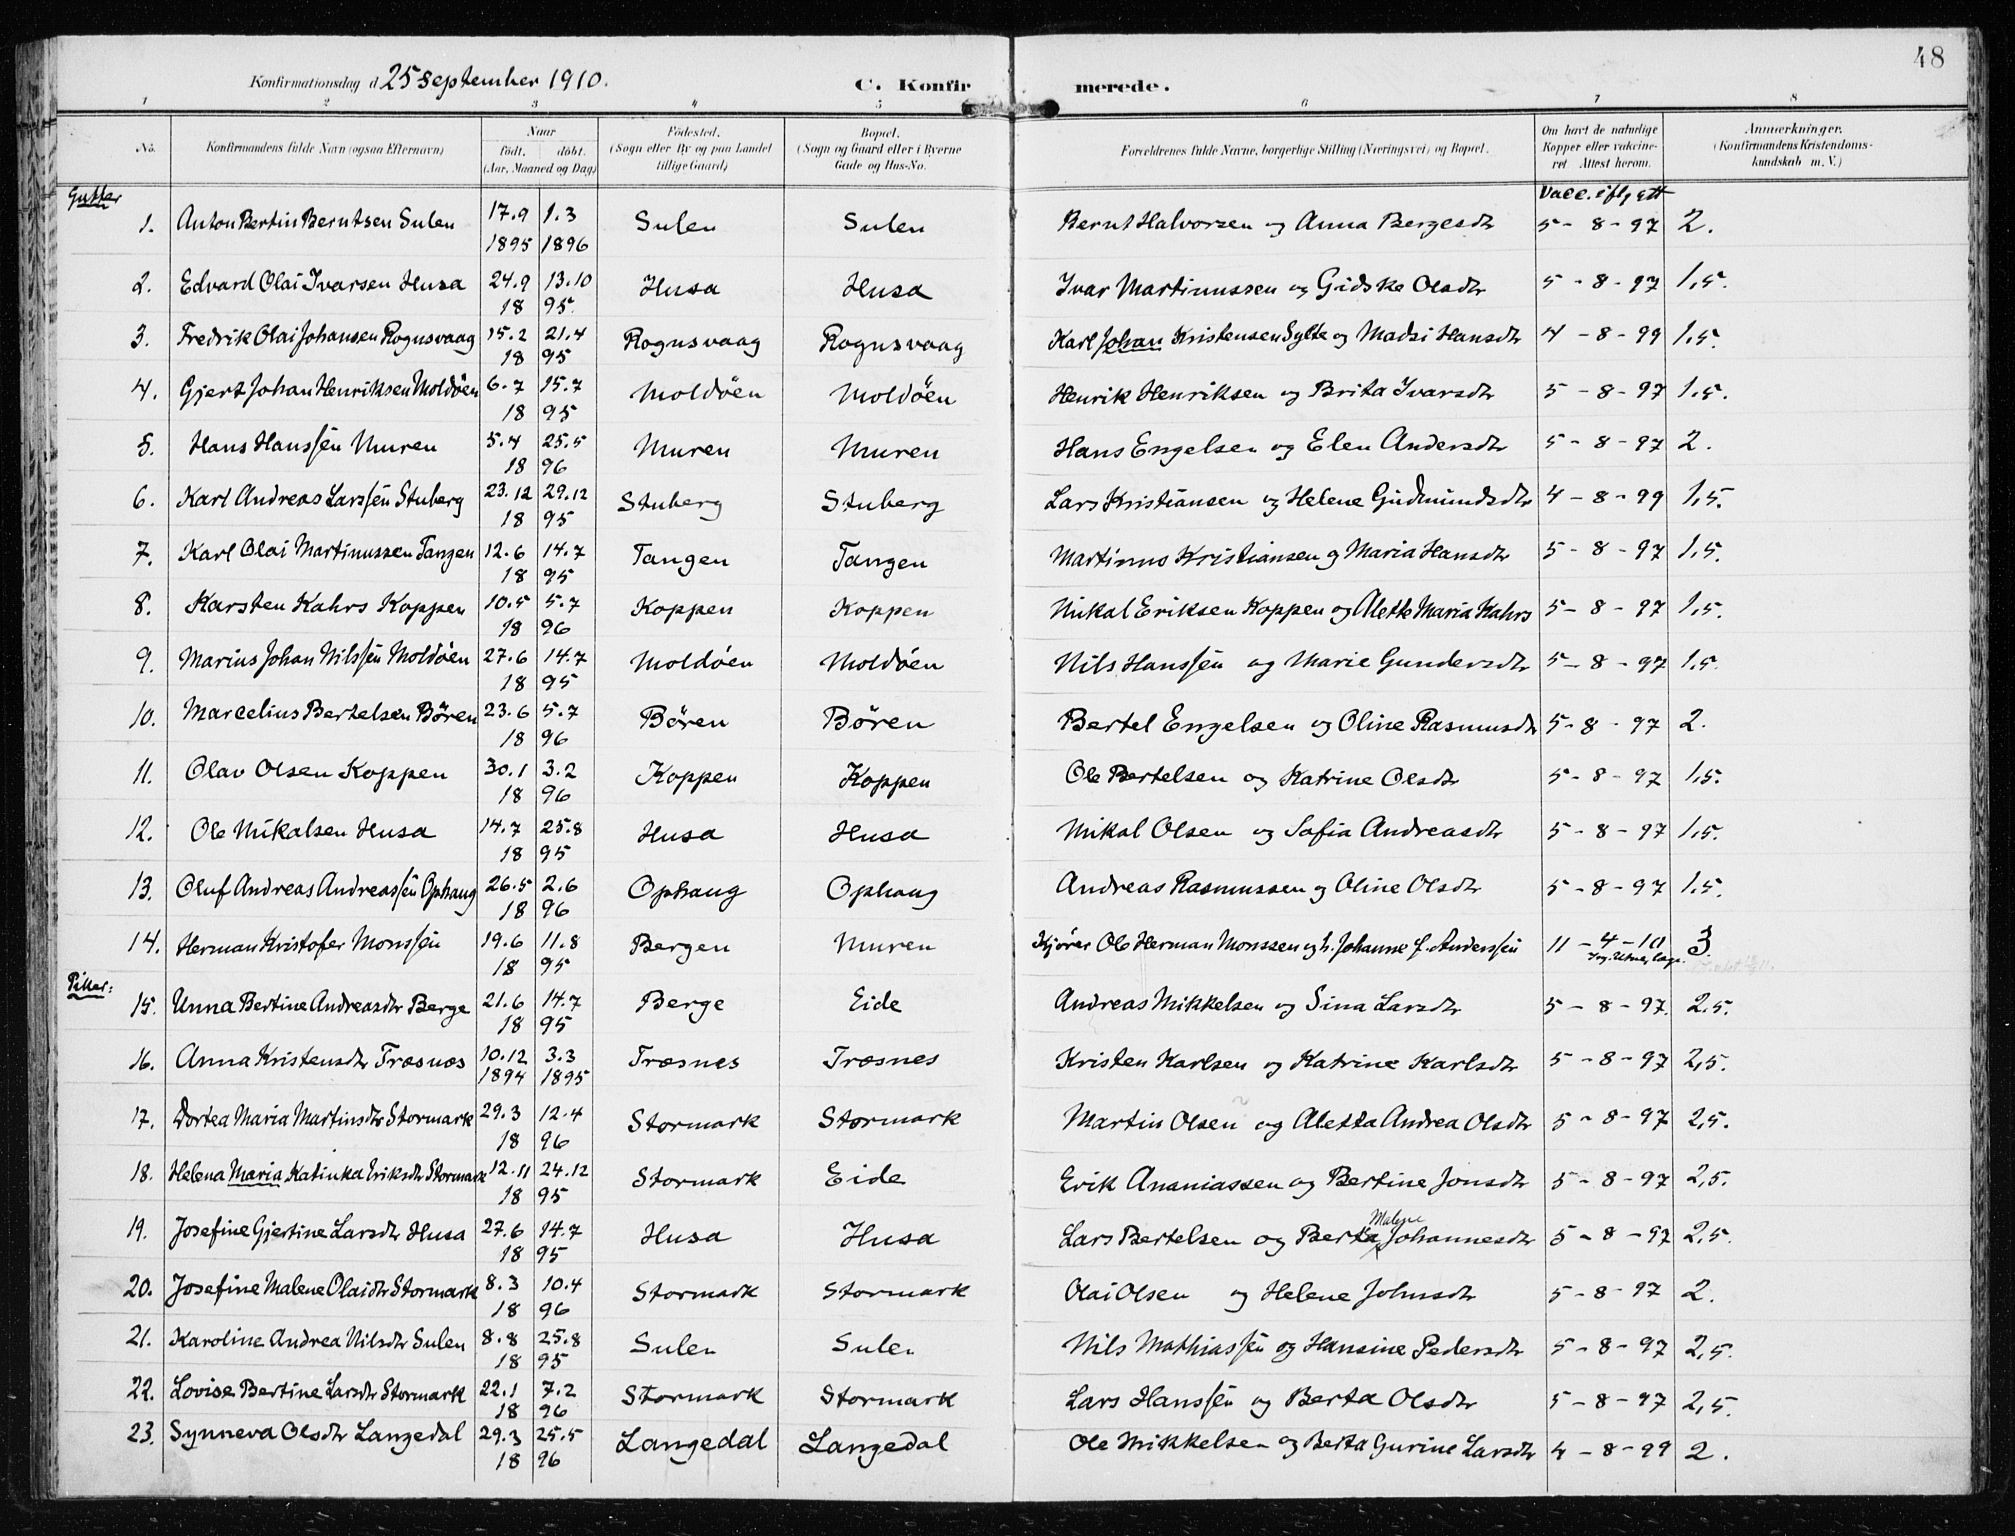 48
Konfirmationsdag d. 25 September 1910. C. Konfirmerede.
1 2 3 4 5 6 7 8
No. Konfirmandens fulde Navn (ogsaa Efternavn) Naar födt. döbt. (Aar, Maaned og Dag) Födested. (Sogn eller By og paa Landet tillige Gaard) Bopæl. (Sogn og Gaard eller i Byerne Gade og Hus-No. Forældrenes fulde Navne, borgerlige Stilling (Næringsvei) og Bopæl. Om havt de naturlige Kopper eller vakcineret Attest herom. Anmærkninger. (Konfirmandens Kristendomskundskab m. V.)
Gutter Vacc. iflg att
1. Anton Bertin Berntsen Sulen 17.9 1895 1.3 1896 Sulen Sulen Bernt Halvorsen og Anna Bergesdtr 5-8-97 2.
2. Edvard Olai Ivarsen Husa 24.9 13.10 1895 Husa Husa Ivar Martinussen og Gidske Olsdtr 5-8-97 1,5.
3. Fredrik Olai Johansen Rognsvaag 15.2 21.4 1895 Rognsvaag Rognsvaag Karl Johan Kristensen Sylte og Madsi Hansdtr 4-8-99 1,5.
4. Gjert Johan Henriksen Moldöen 6.7 15.7 1895 Moldöen Moldöen Henrik Henriksen og Brita Ivarsdtr 5-8-97 1,5.
5. Hans Hanssen Muren 5.4 25.5 1896 Muren Muren Hans Engelsen og Elen Andersdtr 5-8-97 2.
6. Karl Andreas Larssen Stuberg 23.12 29.12 1895 Stuberg Stuberg Lars Kristiansen og Helene Gudmundsdtr 4-8-99 1,5.
7. Karl Olai Martinussen Tangen 12.6 14.7 1895 Tangen Tangen Martinus Kristiansen og Maria Hansdtr 5-8-97 1,5.
8. Karsten Kahrs Koppen 10.5 5.7 1896 Koppen Koppen Nikal Eriksen Koppen og Alette Maria Kahrs 5-8-97 1,5.
9. Marius Johan Nilssen Moldöen 27.6 14.7 1895 Moldöen Moldöen Nils Hanssen og Marie Gundersdtr 5-8-97 1,5.
10. Marcelius Bertelsen Bören 23.6 5.7 1896 Bören Bören Bertel Engelsen og Oline Rasmusdtr 5-8-97 2.
11. Olav Olsen Koppen 30.1 3.2 1896 Koppen Koppen Ole Bertelsen og Katrine Olsdtr 5-8-97 1,5.
12. Ole Mikalsen Husa 14.7 25.8 1895 Husa Husa Mikal Olsen og Sofia Andreasdtr 5-8-97 1,5.
13. Oluf Andreas Andreassen Ophaug 26.5 2.6 1896 Ophaug Ophaug Andreas Rasmussen og Oline Olsdtr 5-8-97 1,5.
14. Herman Kristofer Monssen 19.6 11.8 1895 Bergen Muren Kjörer Ole Herman Monssen og h. Johanne f. Anderssen 11-4-10 3.
Piker:
15. Unna Bertine Andreasdtr Berge 21.6 14.7 1895 Berge Eide Andreas Mikkelsen og Sina Larsdtr 5-8-97. 2,5.
16. Anna Kristensdtr Træsnes 10.12 1894 3.3 1895 Træsnes Træsnes Kristen Karlsen og Katrine Karlsdtr 5-8-97 2,5.
17. Dortea Maria Martinsdtr Stormark 29.3 12.4 1896 Stormark Stormark Martin Olsen og Aletta Andrea Olsdtr 5-8-97 2,5.
18. Helena Maria Katinka Eriksdtr Stormark 12.11 24.12 1895 Stormark Eide Erik Ananiassen og Bertine Jonsdtr 5-8-97 2,5.
19. Josefine Gjertine Larsdtr Husa 27.6 14.7 1895 Husa Husa Lars Bertelsen og Berta Malene Johannesdtr 5-8-97 2,5.
20. Josefine Malene Olaidtr Stormark 8.3 10.4 1896 Stormark Stormark Olai Olsen og Helene Johnsdtr 5-8-97 2.
21. Karoline Andrea Nilsdtr Sulen 8.8 25.8 1895 Sulen Sulen Nils Mathiassen og Hansine Pedersdtr 5-8-97 2,5.
22. Lovise Bertine Larsdtr Stormark 22.1 7.2 1896 Stormark Stormark Lars Hanssen og Berta Olsdtr 5-8-97 2,5.
23. Synneva Olsdtr Langedal 29.3 25.5 1896 Langedal Langedal Ole Mikkelsen og Berta Gurine Larsdtr 4-8-99 2.